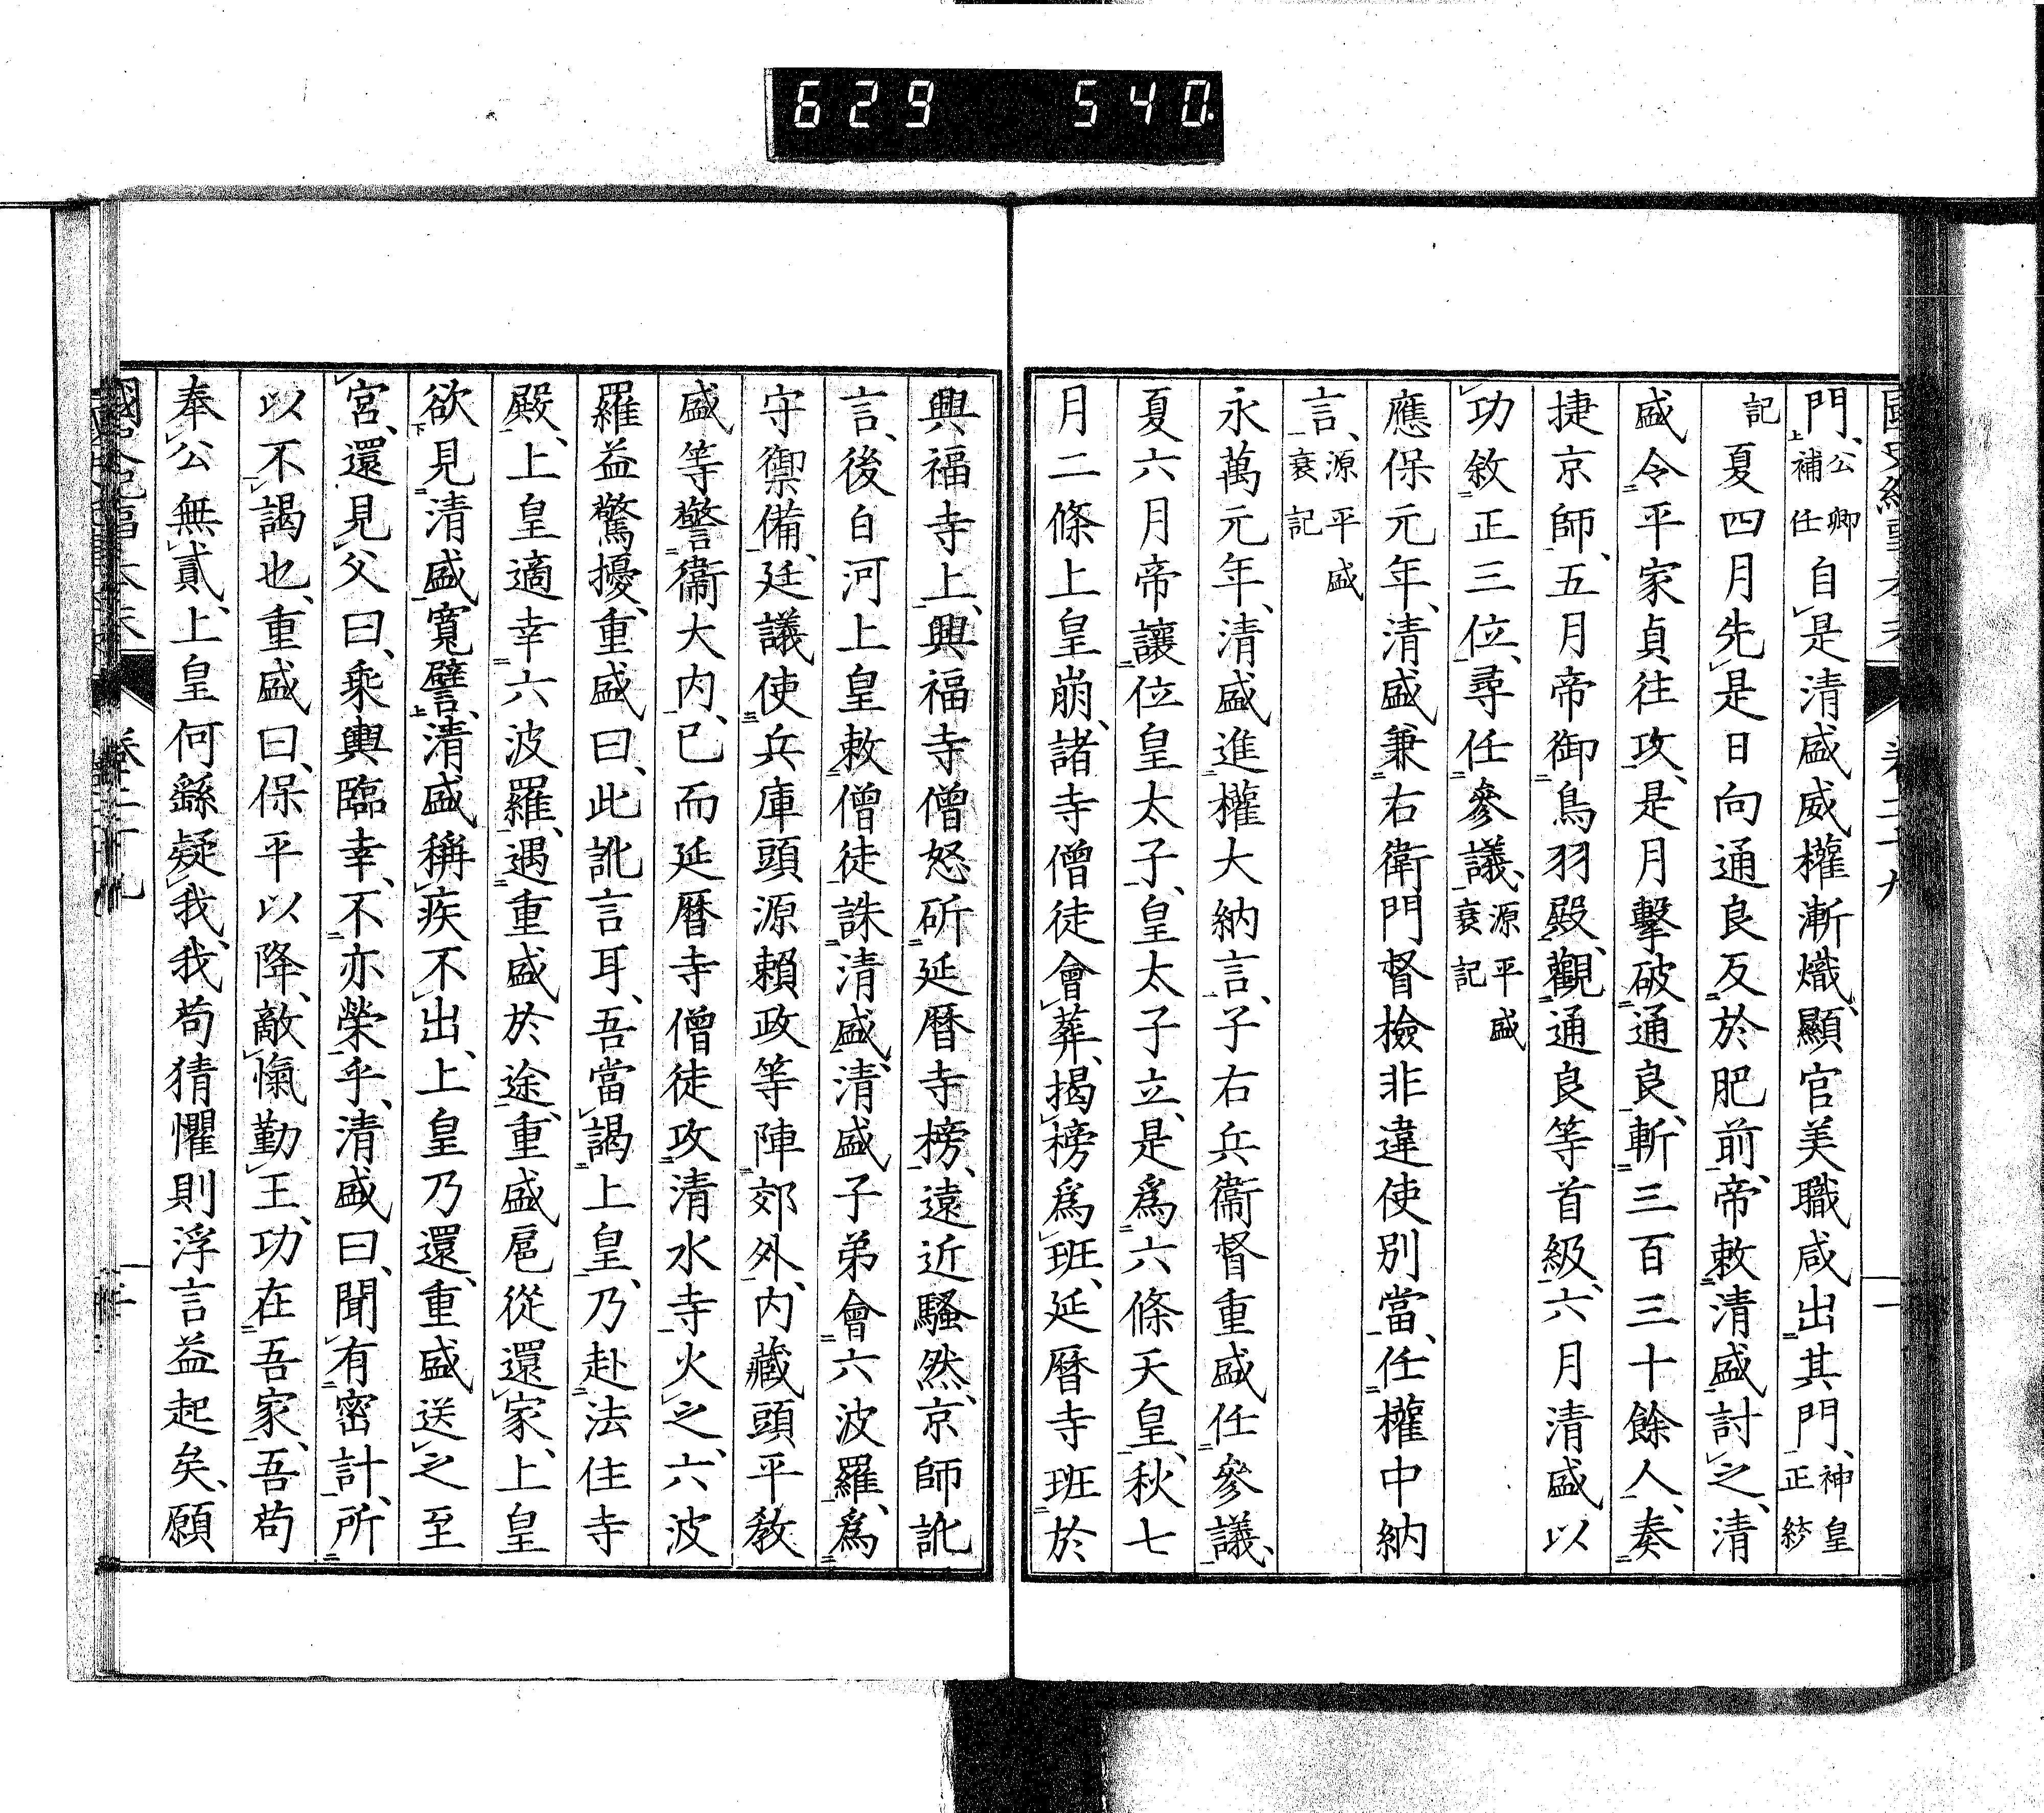 629 540
門、公卿補任自是清盛威權漸熾、顯官美職咸出其門、神皇正統
記夏四月先是日向通良反於肥前、帝敕清盛討之、清
盛令平家貞往攻、是月擊破通良、斬三百三十餘人、奏
捷京師、五月帝御鳥羽殿、觀通良等首級、六月清盛以
功敘正三位、尋任參議、源平盛衰記
應保元年、清盛兼右衛門督檢非違使別當、任權中納
言、源平盛衰記
永萬元年、清盛進權大納言、子右兵衞督重盛任參議、
夏六月帝讓位皇太子、皇太子立、是爲六條天皇、秋七
月二條上皇崩、諸寺僧徒會葬、揭榜爲班、延曆寺班於
興福寺上、興福寺僧怒斫延曆寺榜、遠近騷然、京師訛
言、後白河上皇敕僧徒誅清盛、清盛子弟會六波羅、爲
守禦備、廷議使兵庫頭源賴政等陣郊外、内藏頭平敎
盛等警衞大内、已而延曆寺僧徒攻清水寺火之、六波
羅益驚擾、重盛曰、此訛言耳、吾當謁上皇、乃赴法住寺
殿、上皇適幸六波羅、遇重盛於途、重盛扈從還家、上皇
欲見清盛寬譬、清盛稱疾不出、上皇乃還、重盛送之至
宮、還見父曰、乘輿臨幸、不亦榮乎、清盛曰、聞有密計、所
以不謁也、重盛曰、保平以降、敵愾勤王、功在吾家、吾苟
奉公無貳、上皇何繇疑我、我苟猜懼則浮言益起矣、願